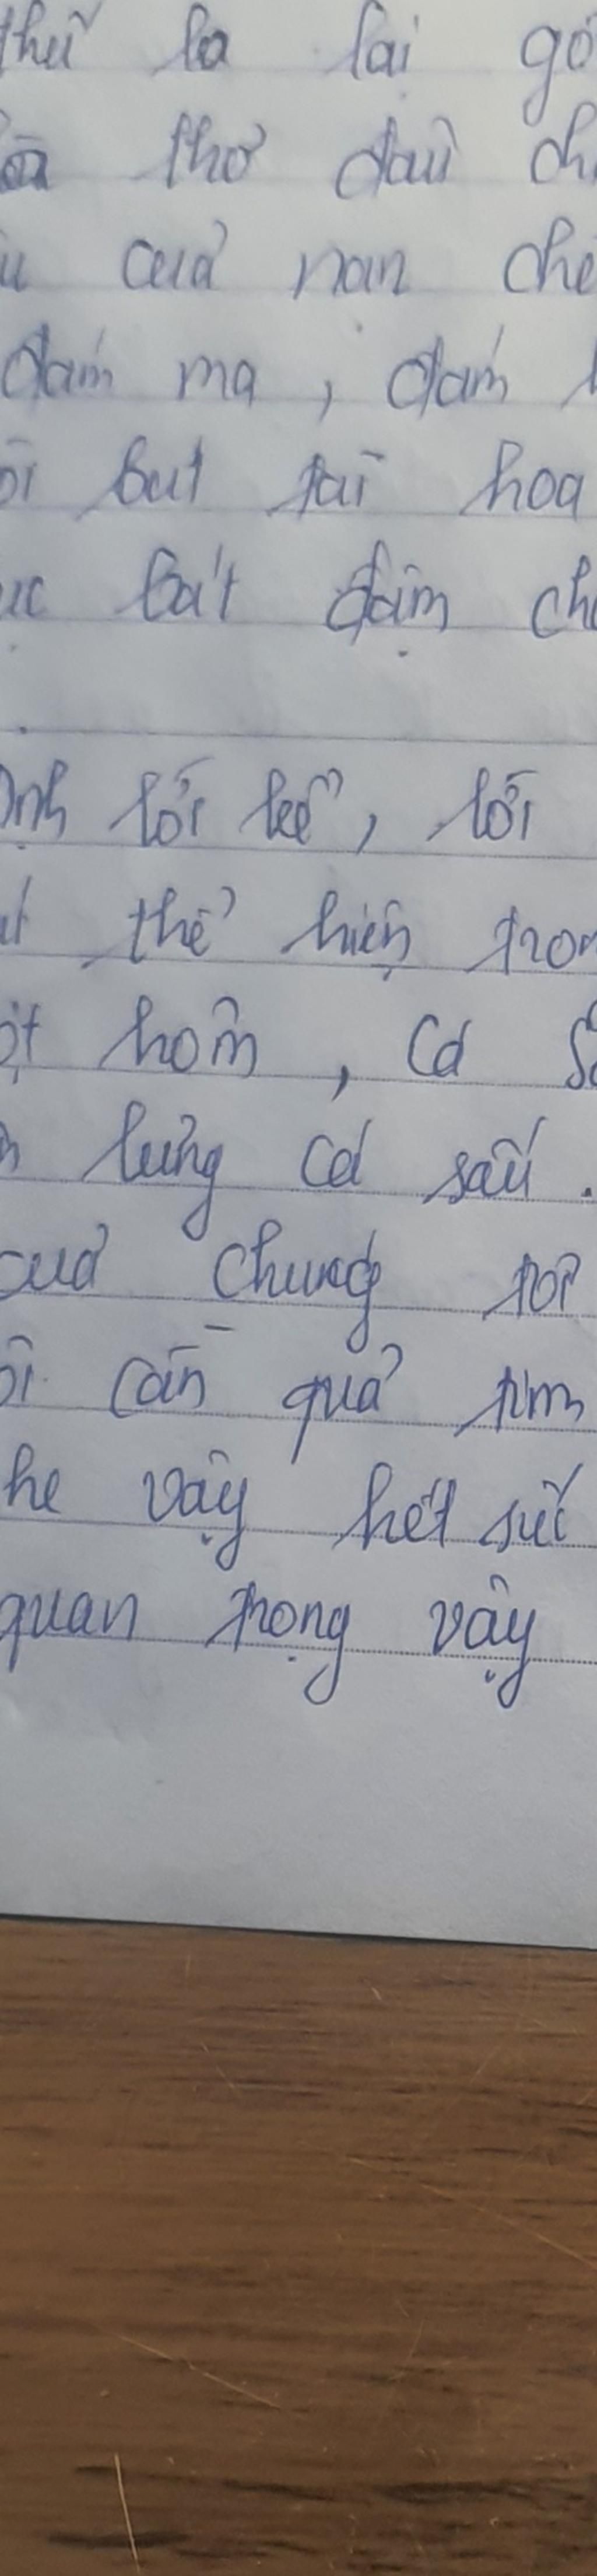 thứ ba lại gó
thơ dài ch
u của nạn chế
đám ma, đám
ôi bút tài hoa
ục bát đậm ch
ịnh lối kể, lời
thể hiện tron
ột hôm, Cá S
lưng cá sấu.
của chúng tôi
ôi cần quả tim
he vậy hết sức
quan trọng vậy